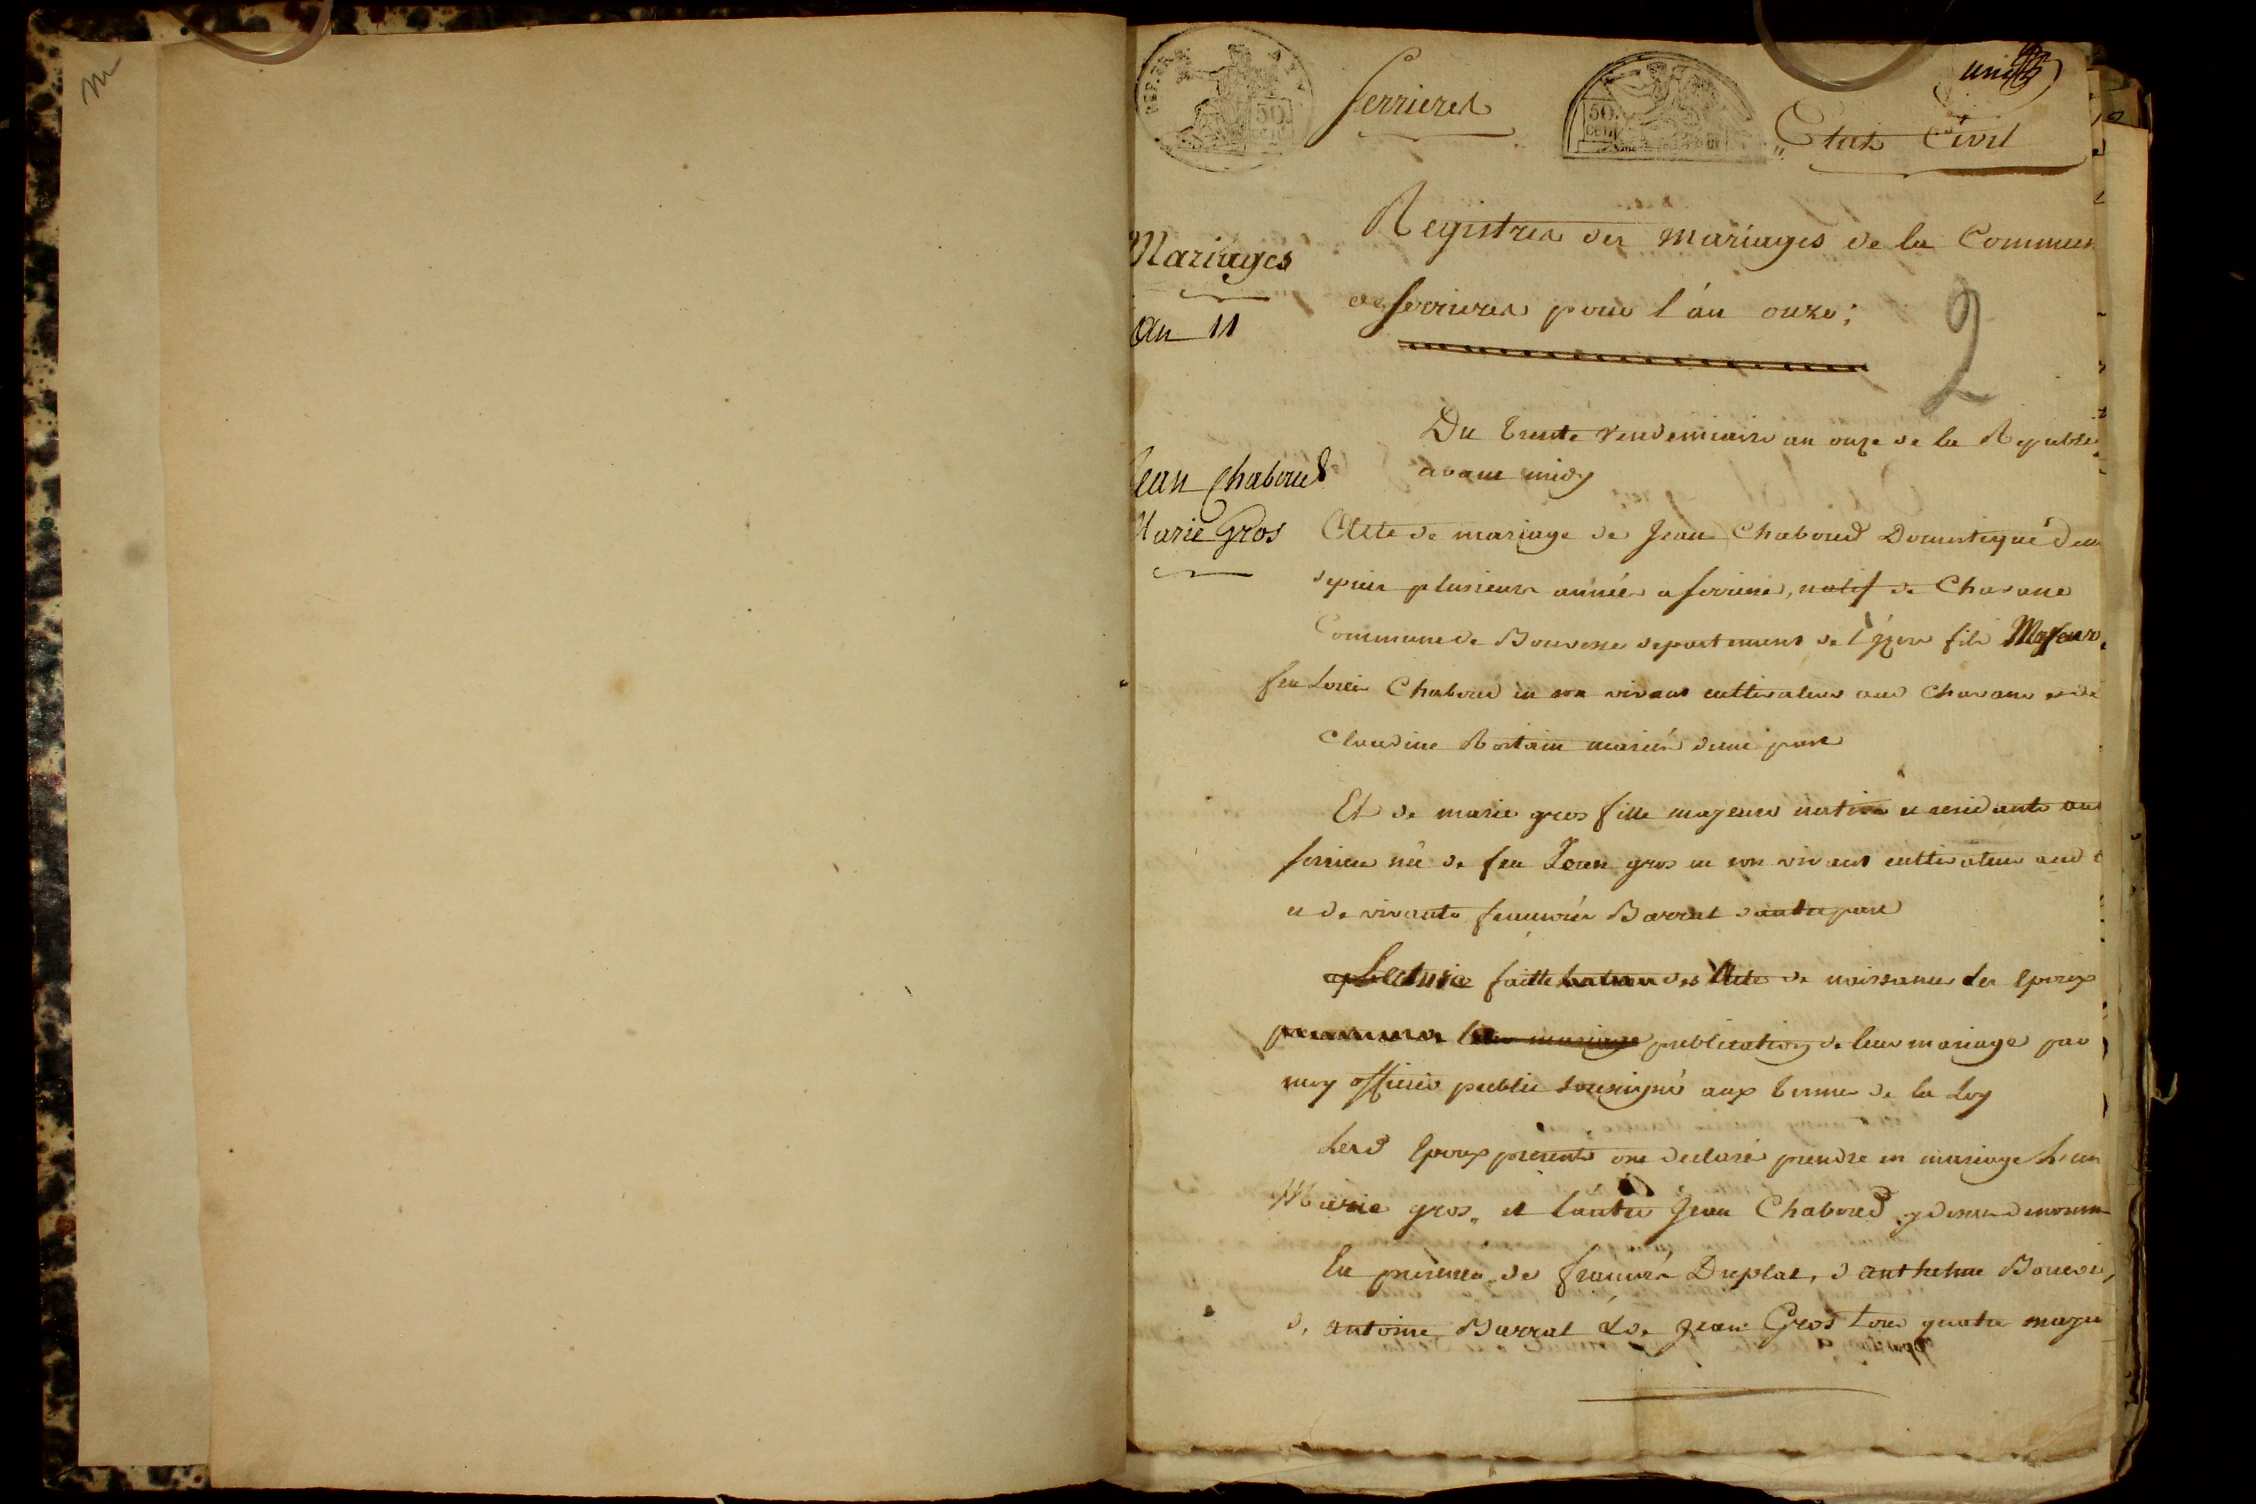 m
REP. FRA
50
CEN
ferrieres
50
CEN
Etat Civil
Registres des mariages de la Commun
Mariages
de ferrieres pour l'án onze;
an 11
2
Du trente vendemiaire an onze de la Republi
avant midy
Jean Chaboud
Marie Gros
Acte de mariage de Jean Chaboud Domestique dem
depuis plusieurs année a ferriere, natif de Chavane
Commune de Bouvesse departement de l'Izere fils Majeur
feu Chaboud en son vivant cultivateur aud Chavane et de
Claudine Rostain mariés dune part
Et de marie gros fille majeure native et residante au
ferriere née de feu Jean gros en son vivant cultivateur aud
et de vivante Barrat dautre part
Lecture faitte des Acte de naissance des Epoux
publication de leur mariage par
moy officier public soussigné aux termes de la Loy
Lesd Epoux presents ont declaré prendre en mariage l'un
Marie gros, et l'autre Jean Chaboud
En presence de francois Duplat, d'anthelme
d. antoine Barrat & de Jean Gros tous quatre maje